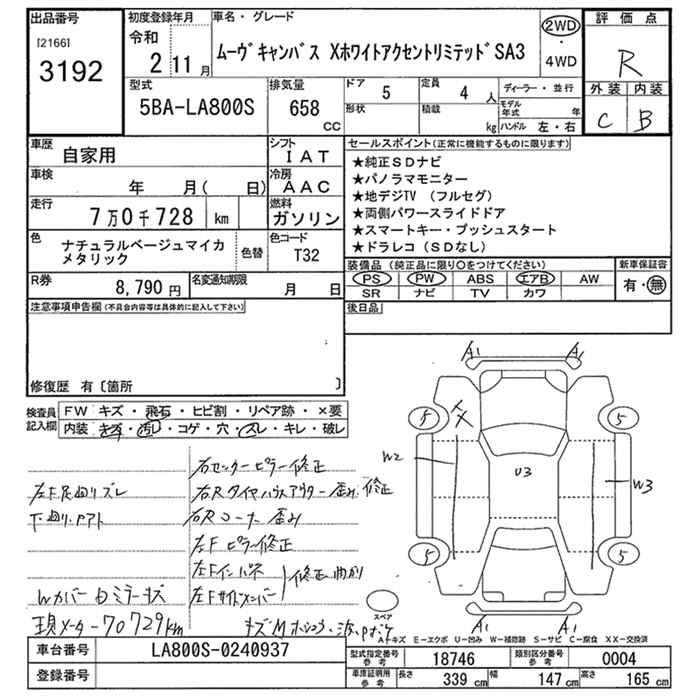 出品番号
[2166]
3192
初度登録年月
令和
2 11月
車名・グレード
ムーヴキャンバス XホワイトアクセントリミテッドSA3
2WD
・
4WD
評価点
R
外装 内装
C B
型式
5BA-LA800S
排気量
658
CC
ドア
5
定員
4 人
形状
積載
kg
ディーラー・並行
モデル年式 年
ハンドル 左・右
車歴
自家用
シフト
IAT
車検
年 月( 日)
冷房
AAC
走行
7万0千728 km
燃料
ガソリン
色
ナチュラルベージュマイカ
メタリック
色替
色コード
T32
R券
8,790 円
名変通知期限
月 日
セールスポイント(正常に機能するものに限ります)
★純正SDナビ
★パノラマモニター
★地デジTV (フルセグ)
★両側パワースライドドア
★スマートキー・プッシュスタート
★ドラレコ(SDなし)
装備品 (純正品に限り○をつけてください)
PS PW ABS エアB AW
SR ナビ TV カワ
新車保証書
有・無
後日品
注意事項申告欄(不具合内容等は具体的に記入して下さい)
修復歴 有〔箇所 〕
検査員
記入欄
FW キズ・飛石・ヒビ割・リペア跡・×要
内装 キズ・汚レ・コゲ・穴・スレ・キレ・破レ
右センターピラー修正
左F足廻リズレ
右Rタイヤハウスアウター歪み修正
下廻リ.
右Rコーナー歪み
左Fピラー修正
左Fインパネ
左Fサイドメンバー
修正曲り
Wカバー 白ミラーキズ
現メーター70729km
A1 A1
5 5
W2 U3 W3
5 5
スペア
A1 A1
A―キズ E―エクボ U―凹み W―補修跡 S―サビ C―腐食 XX―交換済
車台番号
LA800S-0240937
登録番号
型式指定番号
参考
18746
類別区分番号
参考
0004
車庫証明用
参考
長さ 339 cm 幅 147 cm 高さ 165 cm